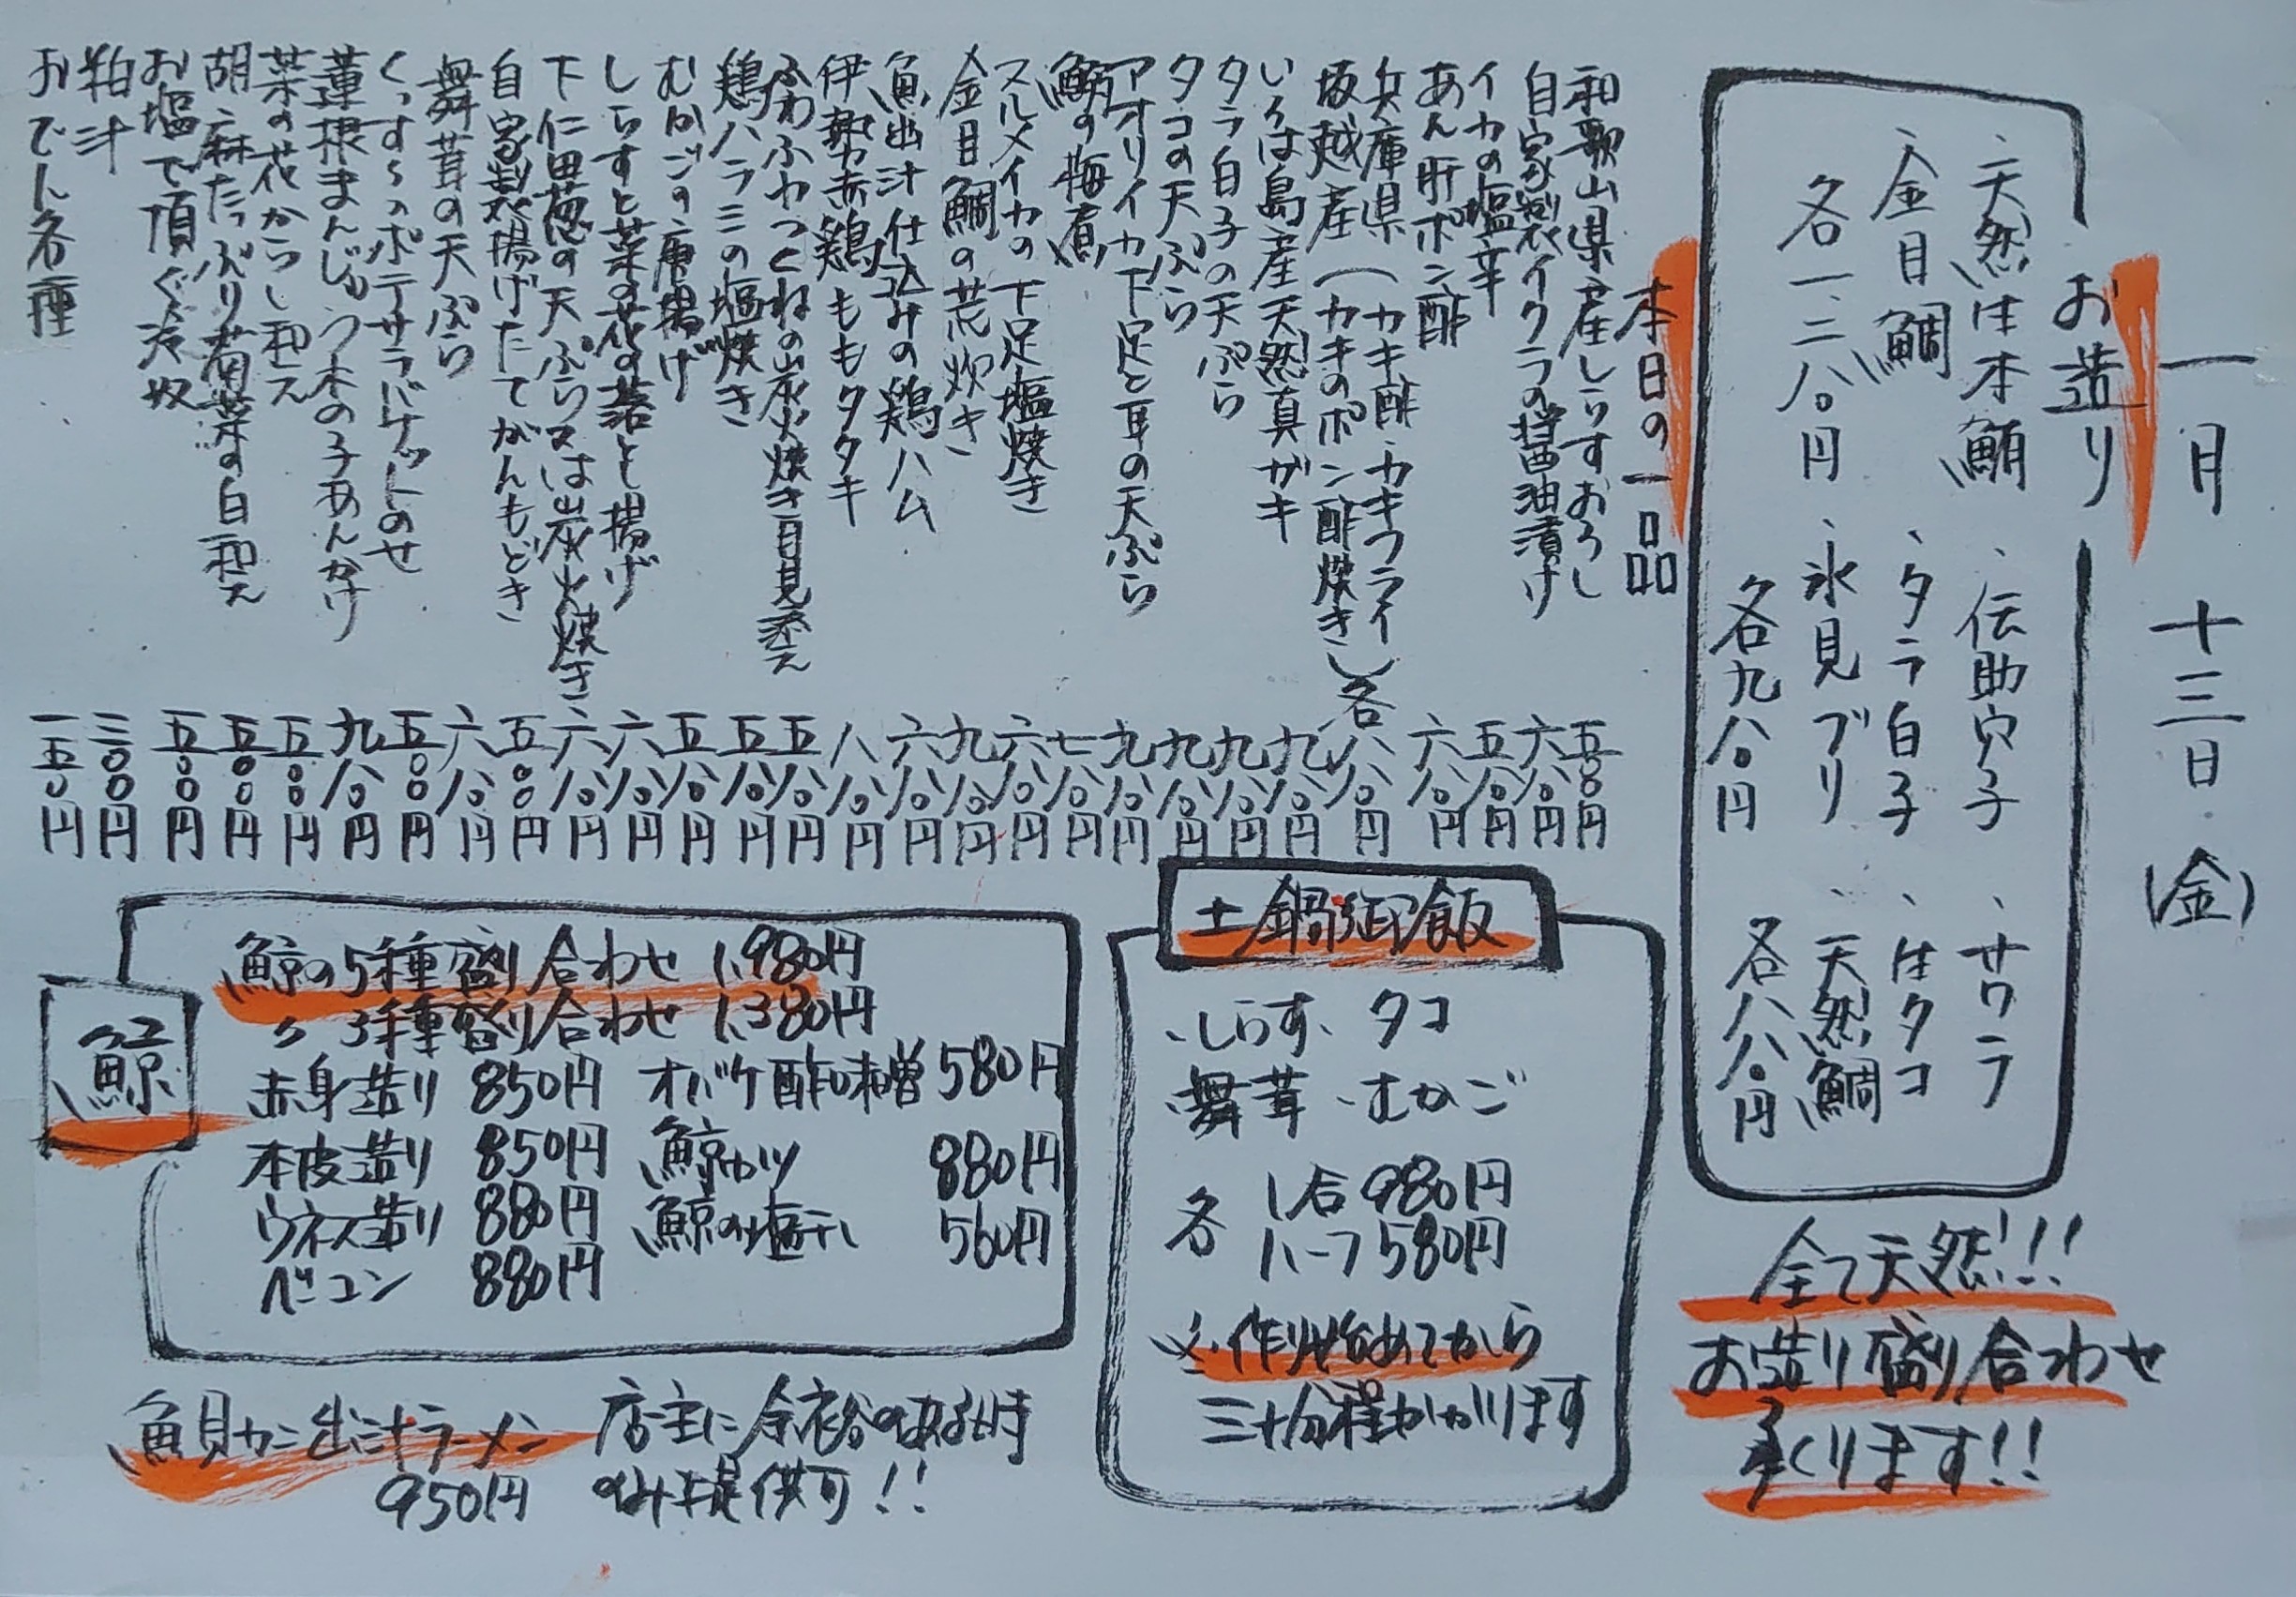 一月 十三日 (金)
お造り
、天然生本鮪 、伝助穴子 、サワラ
、金目鯛 、タラ白子 、生タコ
各一、二八〇円 、氷見ブリ 、天然鯛
各九八〇円 各八八〇円
全て天然!!!
お造り盛り合わせ
承ります!!
本日の一品
和歌山県産しらすおろし 五〇〇円
自家製イクラの醤油漬け 六八〇円
イカの塩辛 五八〇円
あん肝ポン酢 六八〇円
兵庫県 (カキ酢・カキフライ
坂越産 (カキのポン酢焼き) 各八八〇円
いえは島産天然真ガキ 九八〇円
タラ白子の天ぷら 九八〇円
タコの天ぷら 九八〇円
アオリイカ下足と耳の天ぷら 九八〇円
鯛の梅煮 七八〇円
スルメイカの下足塩焼き 六八〇円
金目鯛の荒炊き 九八〇円
魚出汁仕込みの鶏ハム 六八〇円
伊勢赤鶏ももタタキ 八八〇円
ふわふわつくねの炭火焼き黄身添え 五八〇円
鶏ハラミの塩焼き 五八〇円
むかごの唐揚げ 五八〇円
しらすと菜の花の落とし揚げ 六八〇円
下仁田葱の天ぷら又は炭火焼き 六八〇円
自家製揚げたてがんもどき 五〇〇円
舞茸の天ぷら 六八〇円
くっすらポテサラバケットのせ 五〇〇円
蓮根まんじゅう木の子あんかけ 九八〇円
菜の花からし和え 五〇〇円
胡麻たっぷり菊菜の白和え 五〇〇円
お塩で頂く冷奴 五〇〇円
粕汁 三〇〇円
おでん各種 一五〇円
土鍋御飯
・しらす・タコ
・舞茸・むかご
各 1合980円
ハーフ580円
※作り始めてから
三十分程かかります
鯨
鯨の5種盛り合わせ 1,980円
〃 3種盛り合わせ 1,380円
赤身造り 850円 オバケ酢味噌 580円
本皮造り 850円 鯨カツ 880円
ウネス造り 880円 鯨の塩干し 560円
ベーコン 880円
魚貝カニ出汁ラーメン 店主に余裕のある時
950円 のみ提供可!!